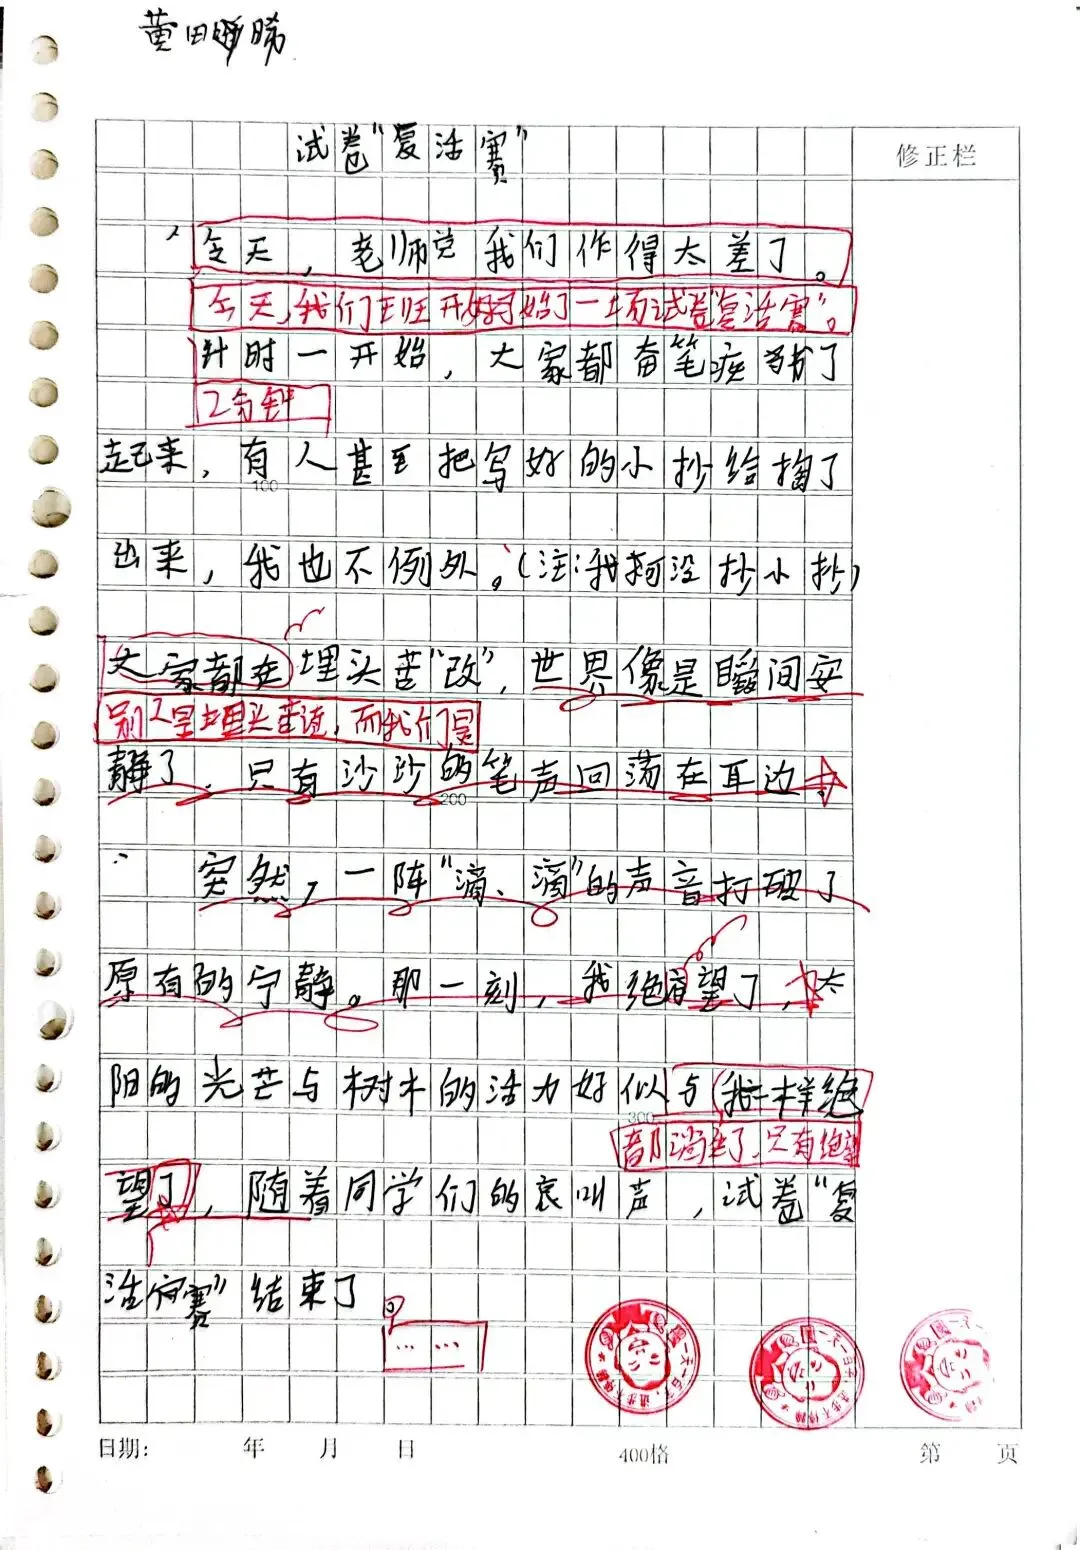 黄田
试卷“复活赛”
修正栏
今天，老师说我们作得太差了。
今天，我们班开始了一项试卷“复活赛”。
计时一开始，大家都奋笔疾书了
2分钟
起来，有人甚至把写好的小抄给掏了
100
出来，我也不例外。（注：我可没抄小抄）
大家都在埋头苦“改”，世界像是瞬间安
别人是埋头苦读，而我们是
静了，只有沙沙的笔声回荡在耳边
200
突然，一阵“滴、滴”的声音打破了
原有的宁静。那一刻，我绝望了，太
阳的光芒与树木的活力好似与我一样绝
300
都消失了，只有绝望
望了，随着同学们的哀叫声，试卷“复
活赛”结束了
……
日期： 年 月 日 400格 第 页